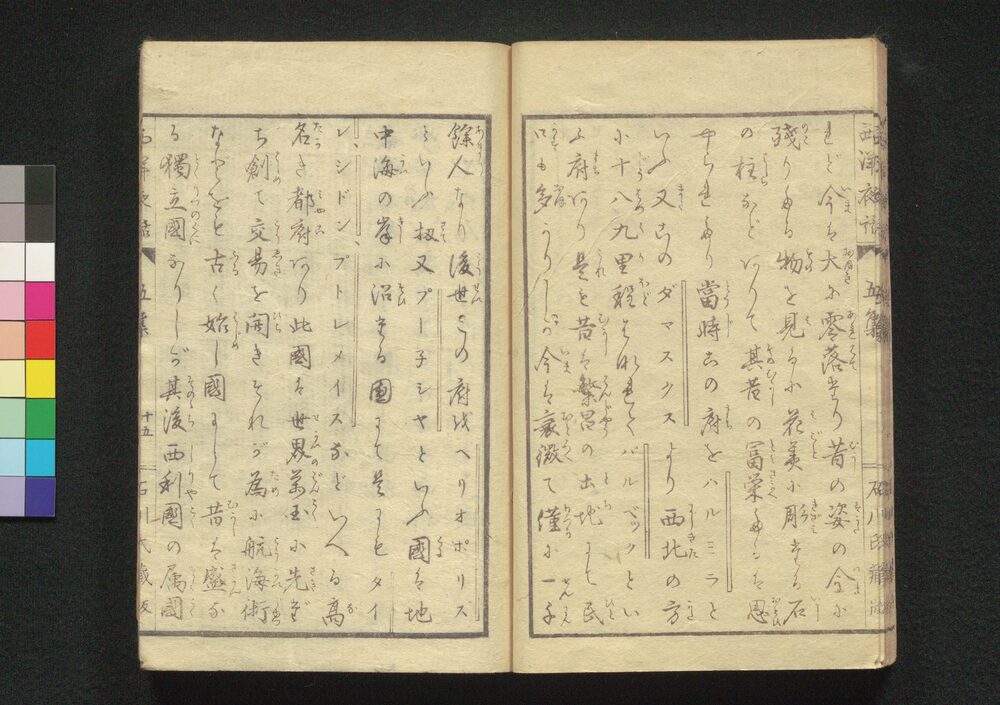 西洋夜話 五集 石川氏蔵版
れど今は大に零落なり昔の姿の全に
残りたる物を見るに花美に彫たる石
の柱などありて其昔の冨栄たるは思
やられたり當時この府をハルミラと
いふ又このダマスクスより西北の方
に十八九里程はなれてバルベックとい
ふ府あり是も昔は繁昌の土地にて民
口も多かりしが今は衰微て僅に一千
餘人なり後世この府をヘリオポリス
といふ扨又プー子シヤといふ國は地
中海の岸に沿たる國にて是にもタイ
レ、シドン、プトレメイスなどいへる高
名き都府あり此國は世界萬国に先だ
ち創て交易を開きそれが為に航海術
なども古く始し國にして昔は盛な
る獨立國なりしが其後西利國の属國
西洋夜話 五集 十五 石川氏蔵版